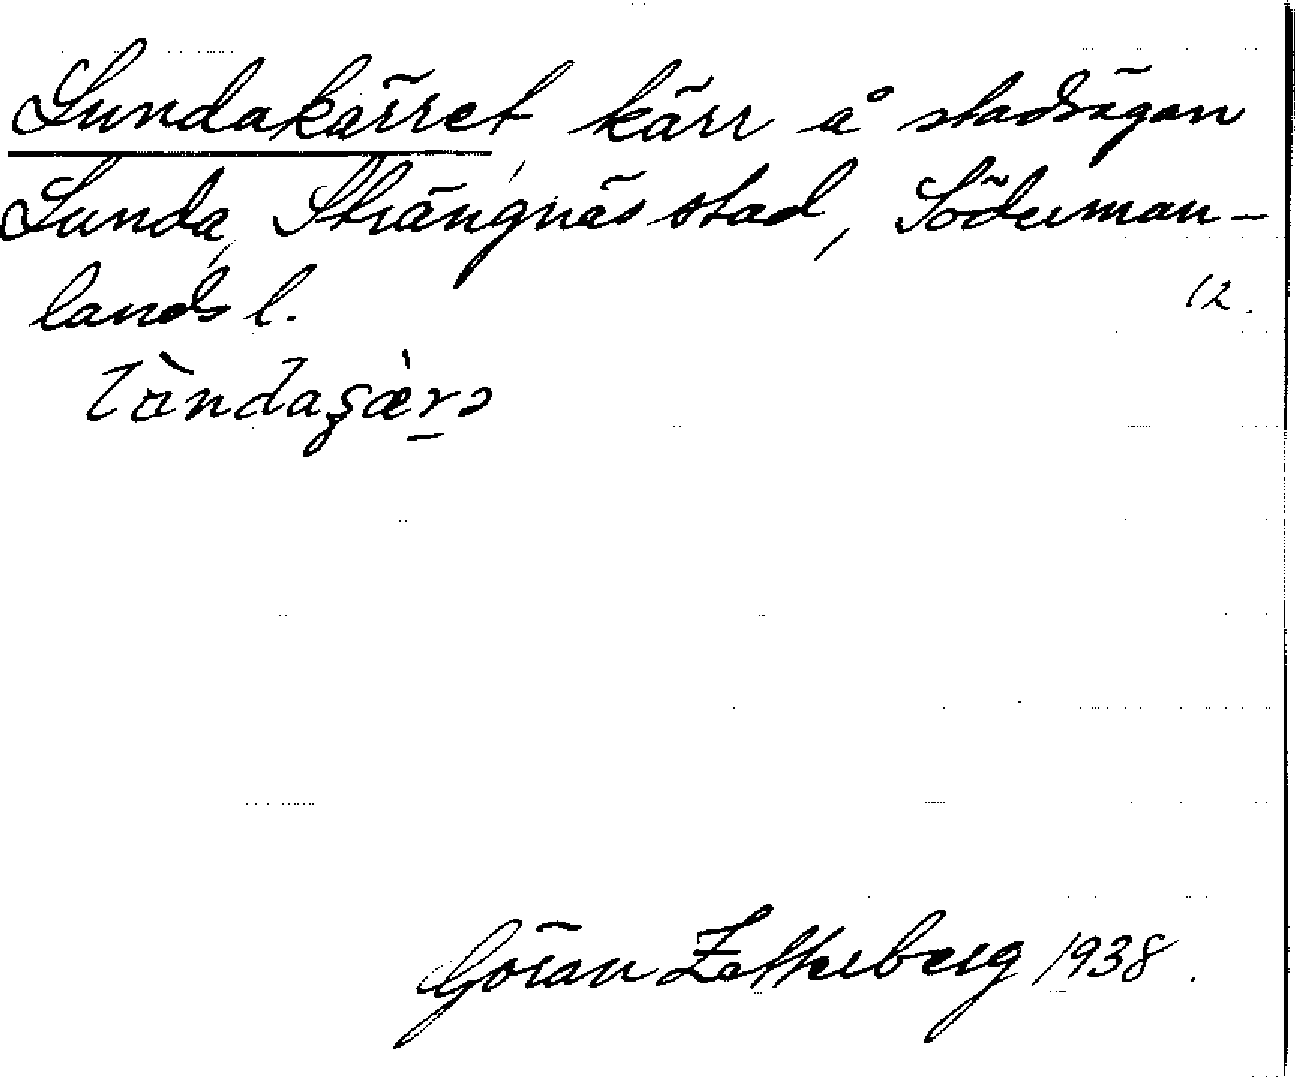 Lundakärret, kärr å stadsägan
Lunda, Strängnäs stad, Söderman-
lands l.
12.
Göran Zetterberg 1938.